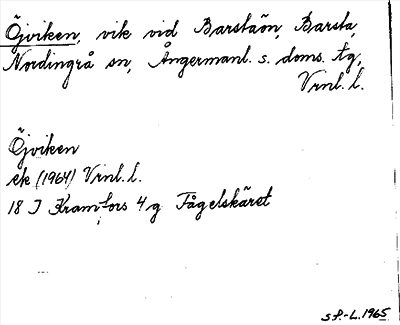 Öjviken, vik vid Barstaön, Barsta,
Nordingrå sn, Ångermanl. s. doms. tg,
Vrnl. l.
Öjviken
ek (1964) Vrnl. l.
18 I Kramfors 4 g Fågelskäret
S P.-L. 1965